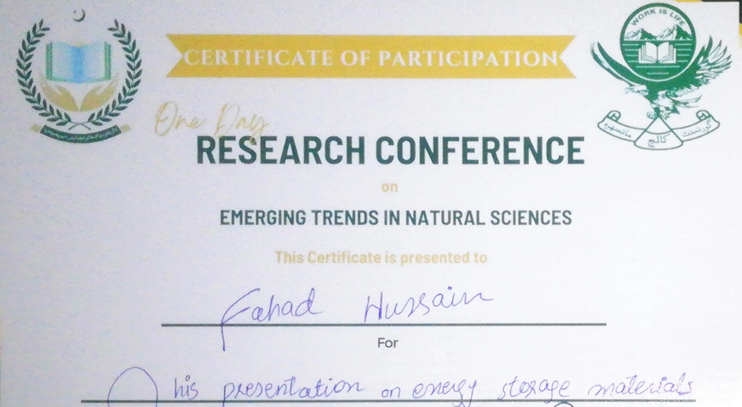 CERTIFICATE OF PARTICIPATION
WORK IS LIFE
گورنمنٹ کالج مانسہرہ
One Day
RESEARCH CONFERENCE
on
EMERGING TRENDS IN NATURAL SCIENCES
This Certificate is presented to
Fahad Hussain
For
his presentation on energy storage materials